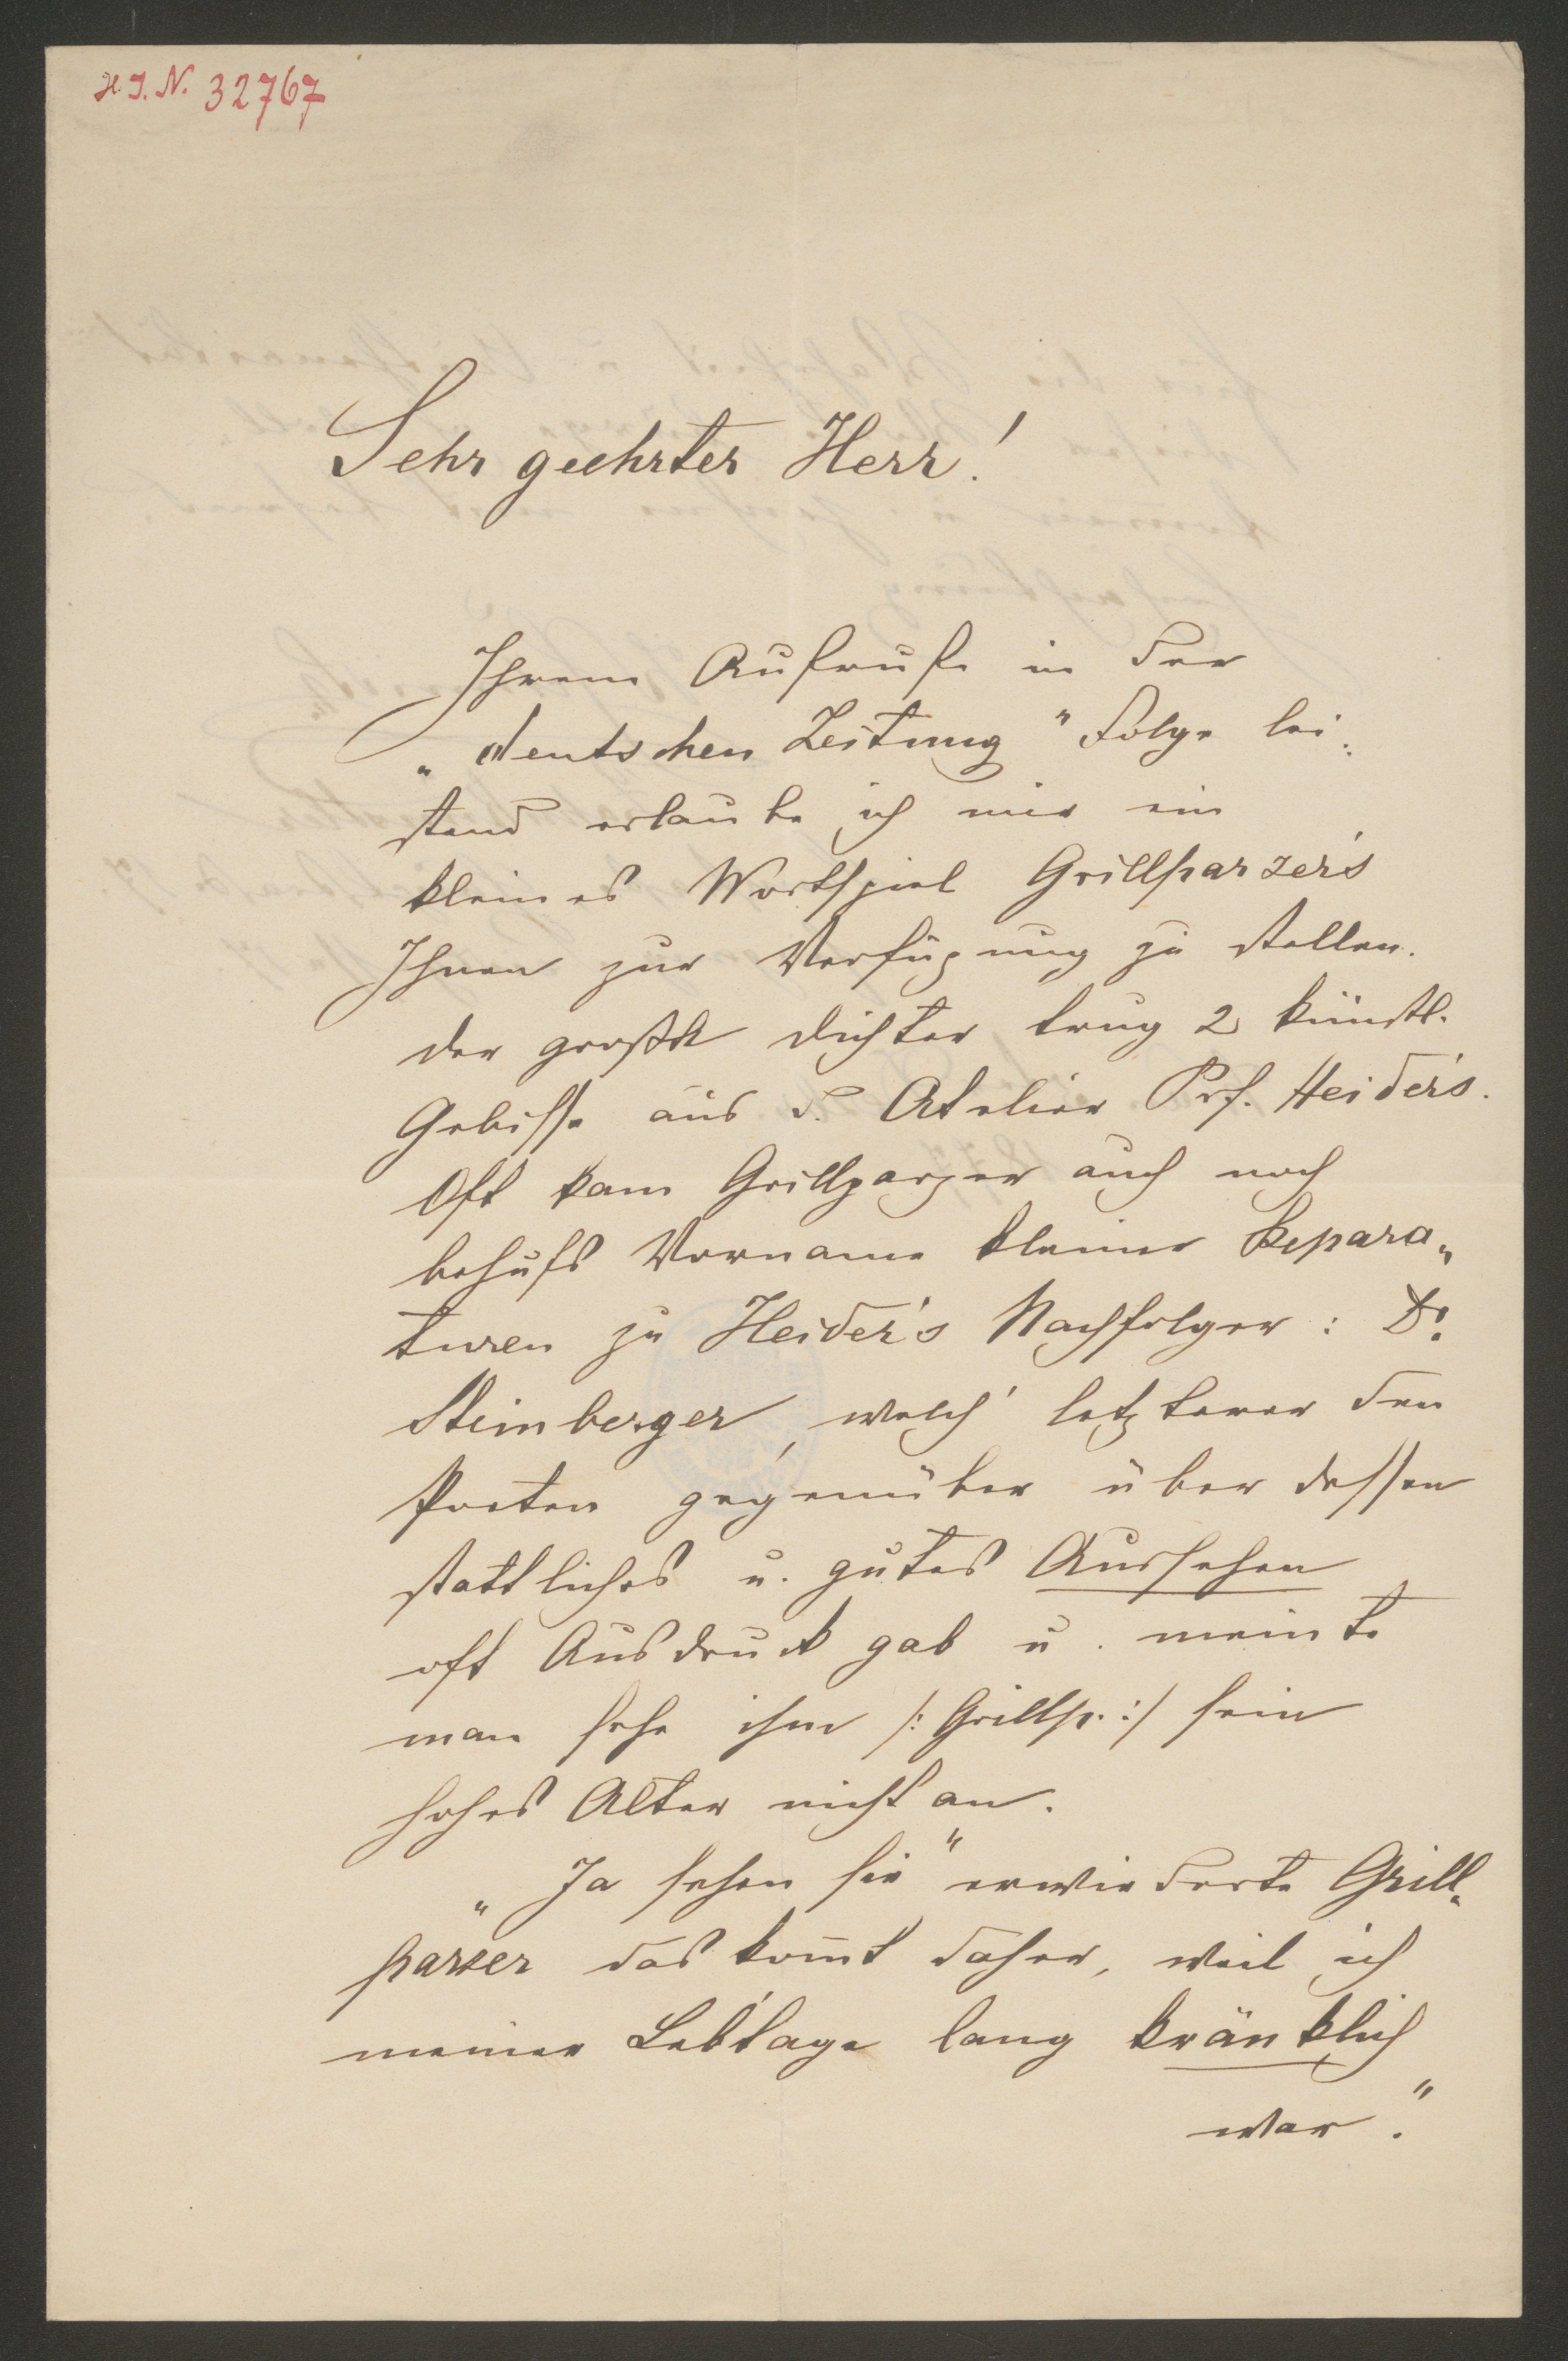 H.J.N. 32767
Sehr geehrter Herr!
Ihrem Aufrufe in der
„deutschen Zeitung" Folge lei-
stend erlaube ich mir ein
kleines Wortspiel Grillparzer's
Ihnen zur Verfügung zu stellen.
Der große Dichter trug 2 künstl.
Gebisse aus d. Atelier Prf. Heider's.
Oft kam Grillparzer auch noch
behufs Vorname kleiner Repara„
turen zu Heider's Nachfolger: Dr.
Steinberger, welch' letzterer den
Poeten gegenüber über dessen
stattliches u. gutes Aussehen
oft Ausdruck gab u. meinte
man sehe ihm /: Grillp. :/ sein
hohes Alter nicht an.
„Ja sehen sie" erwiederte Grill„
parzer das kom̄t daher, weil ich
meiner Leb'tage lang kränklich
war."